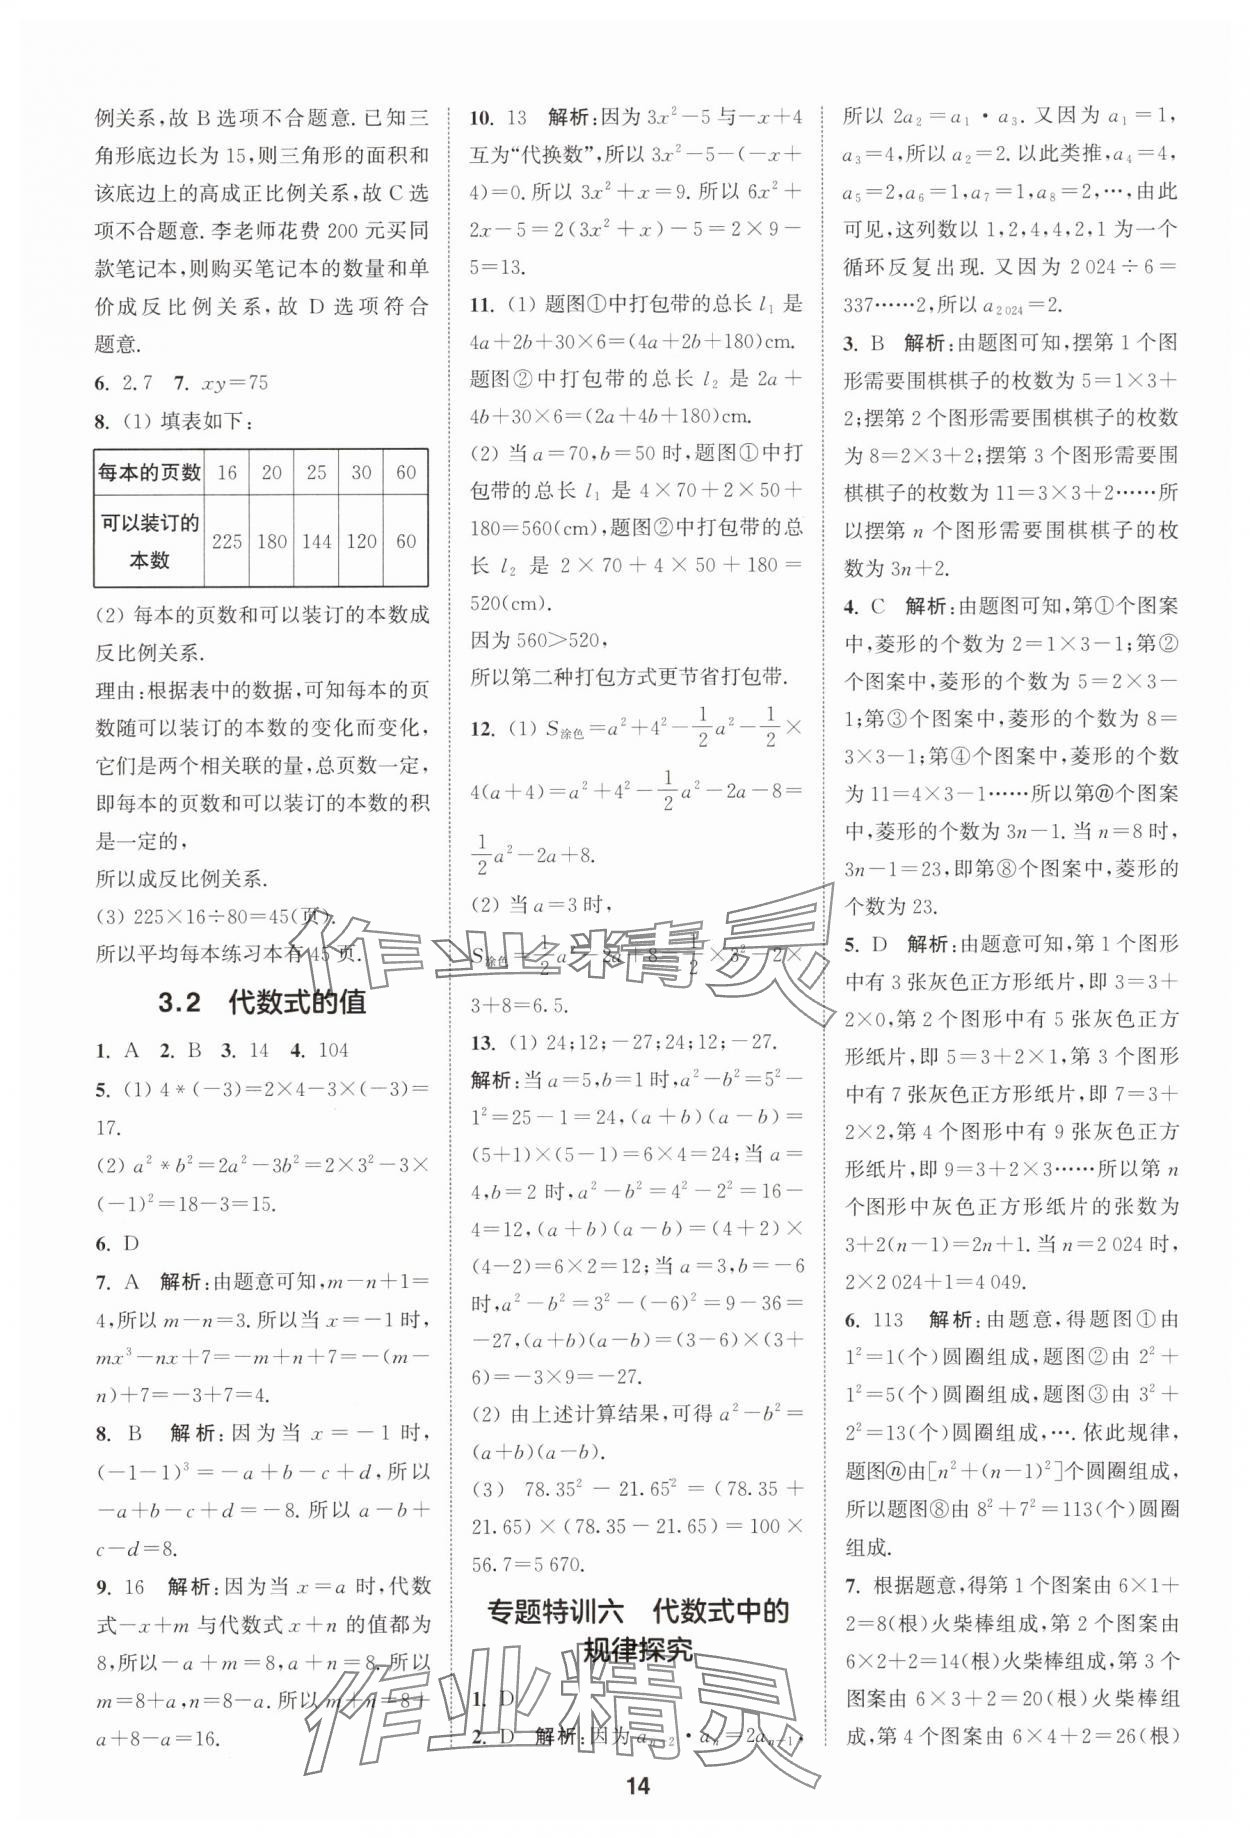 例关系,故 B 选项不合题意.已知三
角形底边长为 15,则三角形的面积和
该底边上的高成正比例关系,故 C 选
项不合题意.李老师花费 200 元买同
款笔记本,则购买笔记本的数量和单
价成反比例关系,故 D 选项符合
题意.
6. 2.7 7. xy=75
8. (1) 填表如下:
每本的页数 16 20 25 30 60
可以装订的
本数 225 180 144 120 60
(2) 每本的页数和可以装订的本数成
反比例关系.
理由:根据表中的数据,可知每本的页
数随可以装订的本数的变化而变化,
它们是两个相关联的量,总页数一定,
即每本的页数和可以装订的本数的积
是一定的,
所以成反比例关系.
(3) 225×16÷80=45(页).
所以平均每本练习本有 45 页.
3.2 代数式的值
1. A 2. B 3. 14 4. 104
5. (1) 4*(-3)=2×4-3×(-3)=
17.
(2) a²*b²=2a²-3b²=2×3²-3×
(-1)²=18-3=15.
6. D
7. A 解析:由题意可知,m-n+1=
4,所以 m-n=3.所以当 x=-1 时,
mx³-nx+7=-m+n+7=-(m-
n)+7=-3+7=4.
8. B 解析:因为当 x=-1 时,
(-1-1)³=-a+b-c+d,所以
-a+b-c+d=-8.所以 a-b+
c-d=8.
9. 16 解析:因为当 x=a 时,代数
式-x+m 与代数式 x+n 的值都为
8,所以-a+m=8,a+n=8.所以
m=8+a,n=8-a.所以 m+n=8+
a+8-a=16.
10. 13 解析:因为 3x²-5 与-x+4
互为“代换数”,所以 3x²-5-(-x+
4)=0.所以 3x²+x=9.所以 6x²+
2x-5=2(3x²+x)-5=2×9-
5=13.
11. (1) 题图①中打包带的总长 l₁ 是
4a+2b+30×6=(4a+2b+180)cm.
题图②中打包带的总长 l₂ 是 2a+
4b+30×6=(2a+4b+180)cm.
(2) 当 a=70,b=50 时,题图①中打
包带的总长 l₁ 是 4×70+2×50+
180=560(cm),题图②中打包带的总
长 l₂ 是 2×70+4×50+180=
520(cm).
因为 560>520,
所以第二种打包方式更节省打包带.
12. (1) S涂色=a²+4²-1/2a²-1/2×
4(a+4)=a²+4²-1/2a²-2a-8=
1/2a²-2a+8.
(2) 当 a=3 时,
S涂色=1/2a²-2a+8=1/2×3²-2×
3+8=6.5.
13. (1) 24;12;-27;24;12;-27.
解析:当 a=5,b=1 时,a²-b²=5²-
1²=25-1=24,(a+b)(a-b)=
(5+1)×(5-1)=6×4=24;当 a=
4,b=2 时,a²-b²=4²-2²=16-
4=12,(a+b)(a-b)=(4+2)×
(4-2)=6×2=12;当 a=3,b=-6
时,a²-b²=3²-(-6)²=9-36=
-27,(a+b)(a-b)=(3-6)×(3+
6)=-3×9=-27.
(2) 由上述计算结果,可得 a²-b²=
(a+b)(a-b).
(3) 78.35²-21.65²=(78.35+
21.65)×(78.35-21.65)=100×
56.7=5 670.
专题特训六 代数式中的
规律探究
1. D
2. D 解析:因为 aₙ₋₂·aₙ=2aₙ₋₁,
所以 2a₂=a₁·a₃. 又因为 a₁=1,
a₃=4,所以 a₂=2. 以此类推,a₄=4,
a₅=2,a₆=1,a₇=1,a₈=2,…,由此
可见,这列数以 1,2,4,4,2,1 为一个
循环反复出现. 又因为 2 024÷6=
337……2,所以 a₂₀₂₄=2.
3. B 解析:由题图可知,摆第 1 个图
形需要围棋棋子的枚数为 5=1×3+
2;摆第 2 个图形需要围棋棋子的枚数
为 8=2×3+2;摆第 3 个图形需要围
棋棋子的枚数为 11=3×3+2……所
以摆第 n 个图形需要围棋棋子的枚
数为 3n+2.
4. C 解析:由题图可知,第①个图案
中,菱形的个数为 2=1×3-1;第②
个图案中,菱形的个数为 5=2×3-
1;第③个图案中,菱形的个数为 8=
3×3-1;第④个图案中,菱形的个数
为 11=4×3-1……所以第ⓝ个图案
中,菱形的个数为 3n-1. 当 n=8 时,
3n-1=23,即第⑧个图案中,菱形的
个数为 23.
5. D 解析:由题意可知,第 1 个图形
中有 3 张灰色正方形纸片,即 3=3+
2×0,第 2 个图形中有 5 张灰色正方
形纸片,即 5=3+2×1,第 3 个图形
中有 7 张灰色正方形纸片,即 7=3+
2×2,第 4 个图形中有 9 张灰色正方
形纸片,即 9=3+2×3……所以第 n
个图形中灰色正方形纸片的张数为
3+2(n-1)=2n+1. 当 n=2 024 时,
2×2 024+1=4 049.
6. 113 解析:由题意,得题图①由
1²=1(个)圆圈组成,题图②由 2²+
1²=5(个)圆圈组成,题图③由 3²+
2²=13(个)圆圈组成,…. 依此规律,
题图ⓝ由[n²+(n-1)²]个圆圈组成,
所以题图⑧由 8²+7²=113(个)圆圈
组成.
7. 根据题意,得第 1 个图案由 6×1+
2=8(根)火柴棒组成,第 2 个图案由
6×2+2=14(根)火柴棒组成,第 3 个
图案由 6×3+2=20(根)火柴棒组
成,第 4 个图案由 6×4+2=26(根)
作业精灵
作业精灵
14